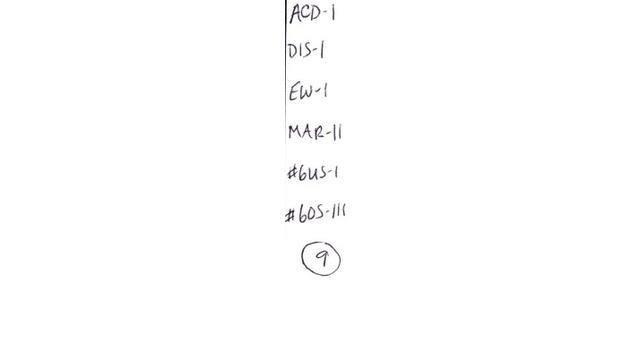 ACD-I
DIS-I
EW-I
MAR-II
#6US-I
#6OS-III
9